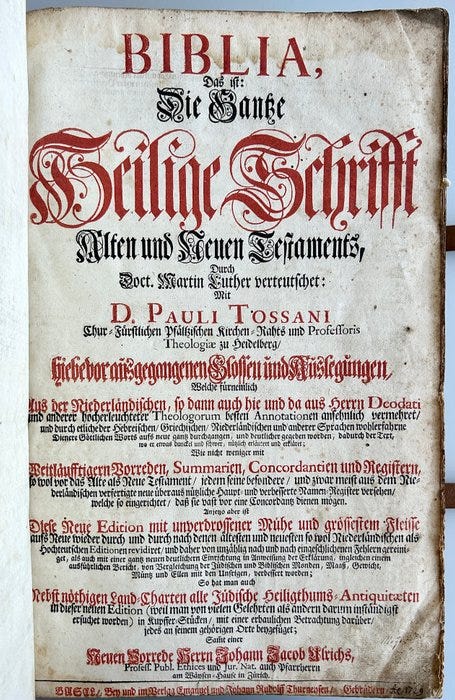 BIBLIA,
Das ist:
Die Gantze
Heilige Schrifft
Alten und Neuen Testaments,
Durch
Doct. Martin Luther verteutschet:
Mit
D. PAULI TOSSANI
Chur-Fürstlichen Pfältzischen Kirchen-Rahts und Professoris
Theologiæ zu Heidelberg/
hiebevor außgegangenen Glossen und Außlegungen,
Welche fürnemlich
Aus der Niederländischen, so dann auch hie und da aus Herrn Deodati
und anderer hocherleuchteter Theologorum besten Annotationen ansehnlich vermehret/
und durch etliche der Hebreischen/ Griechischen/ Niederländischen und anderer Sprachen wohlerfahrne
Dienere Göttlichen Worts aufs neue gantz durchgangen, und deutlicher gegeben worden, dadurch der Text,
wo er etwas dunckel und schwer, nützlich erläutert und erkläret;
Wie nicht weniger mit
Weitläufftigern Vorreden, Summarien, Concordantien und Registern,
so wol vor das Alte als Neue Testament/ jedem seine besondere/ und zwar meist aus dem Nie-
derländischen verfertigte neue überaus nützliche Haupt- und verbesserte Namen-Register versehen/
welche so eingerichtet/ daß sie vast vor eine Concordantz dienen mögen.
Anjetzo aber ist
Diese Neue Edition mit unverdrossener Mühe und grössestem Fleisse
aufs Neue wieder durch und durch nach denen ältesten und neuesten so wol Niederländischen als
Hochteutschen Editionen revidiret/ und daher von unzählig nach und nach eingeschlichenen Fehlern gereini-
get, als auch mit einer gantz neuen deutlichen Einrichtung in Anweisung der Erklärung, ingleichen einem
ausführlichen Bericht, von Vergleichung der Jüdischen und Biblischen Monden, Maaß, Gewicht,
Müntz und Ellen mit den Unsrigen, verbessert worden;
So hat man auch
Nebst nöthigen Land-Charten alle Jüdische Heiligthums-Antiquitæten
in dieser neuen Edition (weil man von vielen Gelehrten als andern darum inständigst
ersuchet worden) in Kupffer-Stücken/ mit einer erbaulichen Betrachtung darüber/
jedes an seinem gehörigen Orte beygefüget;
Samt einer
Neuen Vorrede Herrn Johann Jacob Ulrichs,
Profess. Publ. Ethices und Jur. Nat. auch Pfarrherrn
am Wäysen-Hause in Zürich.
BASEL/ Bey und im Verlag Emanuel und Johann Rudolff Thurneysen/ Gebrüdern